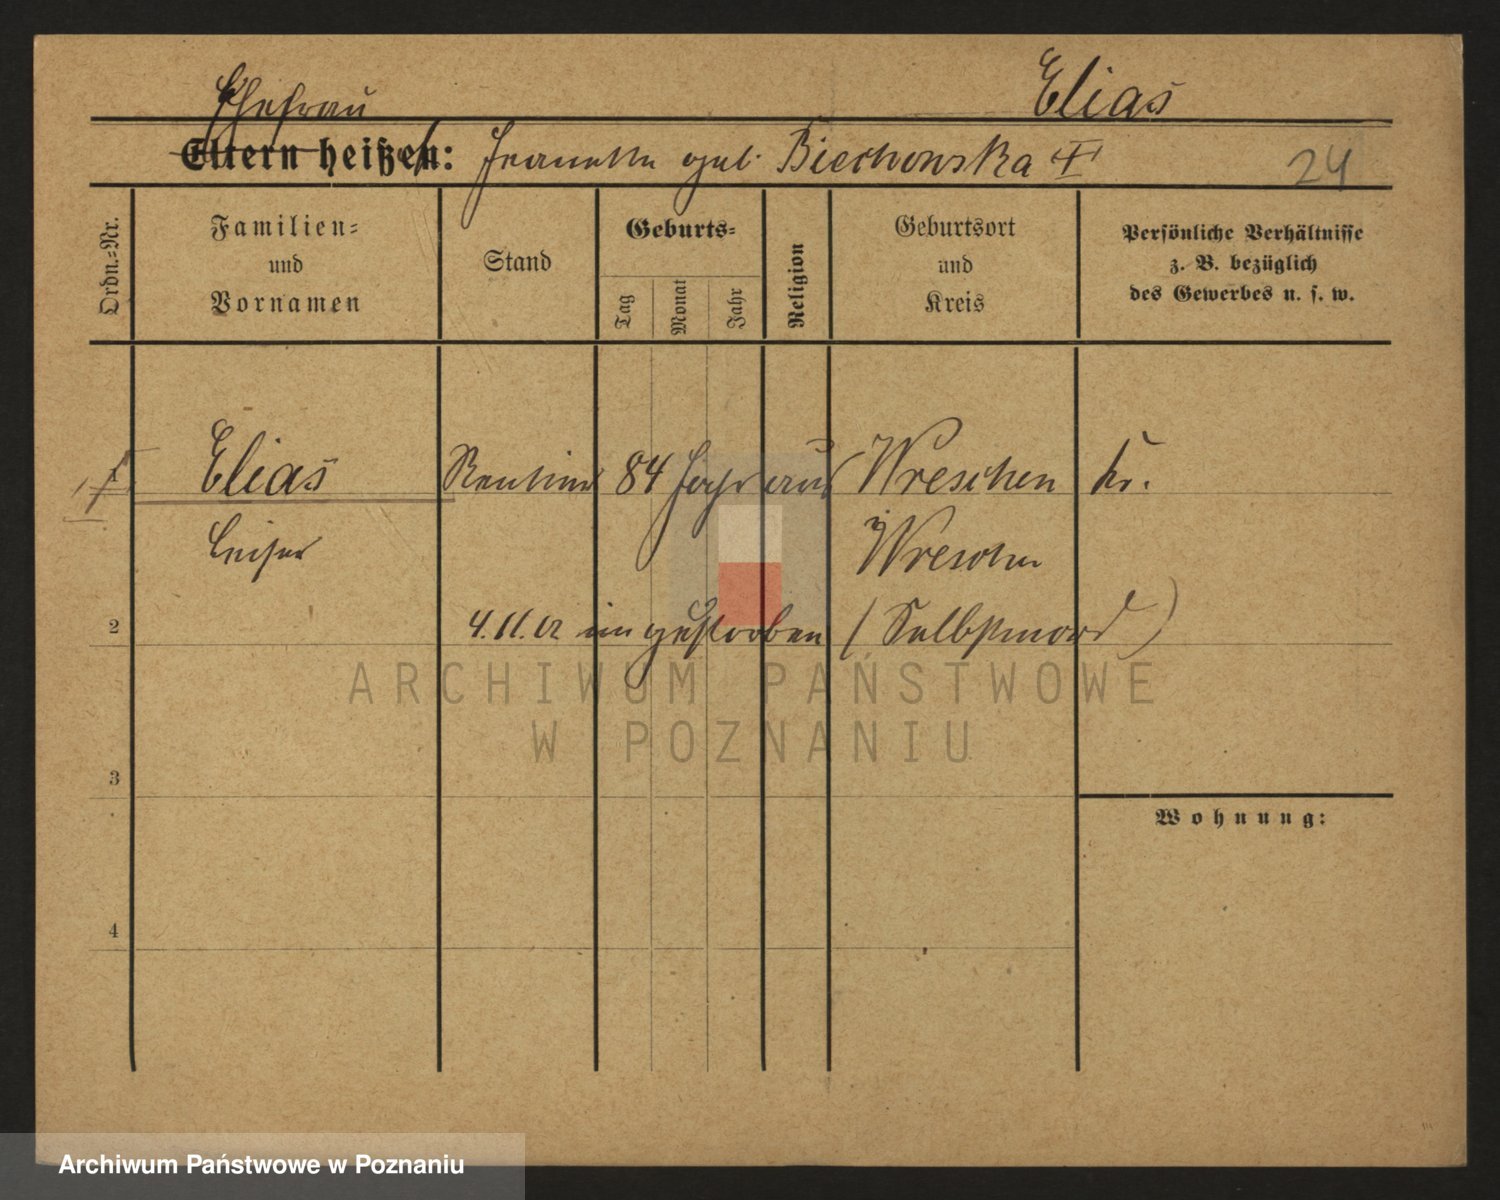 Elias
Ehefrau
Eltern heißen: Jeanette geb. Biechowska
24
Ordn.-Nr.
Familien-
und
Vornamen
Stand
Geburts-
Tag
Monat
Jahr
Religion
Geburtsort
und
Kreis
Persönliche Verhältnisse
z. B. bezüglich
des Gewerbes u. s. w.
1 Elias Rentier 84 Jahr aus Wreschen Kr.
Leiser Wreschen
2 4.11.02 gestorben (Selbstmord)
ARCHIWUM PAŃSTWOWE
W POZNANIU
3
Wohnung:
4
Archiwum Państwowe w Poznaniu